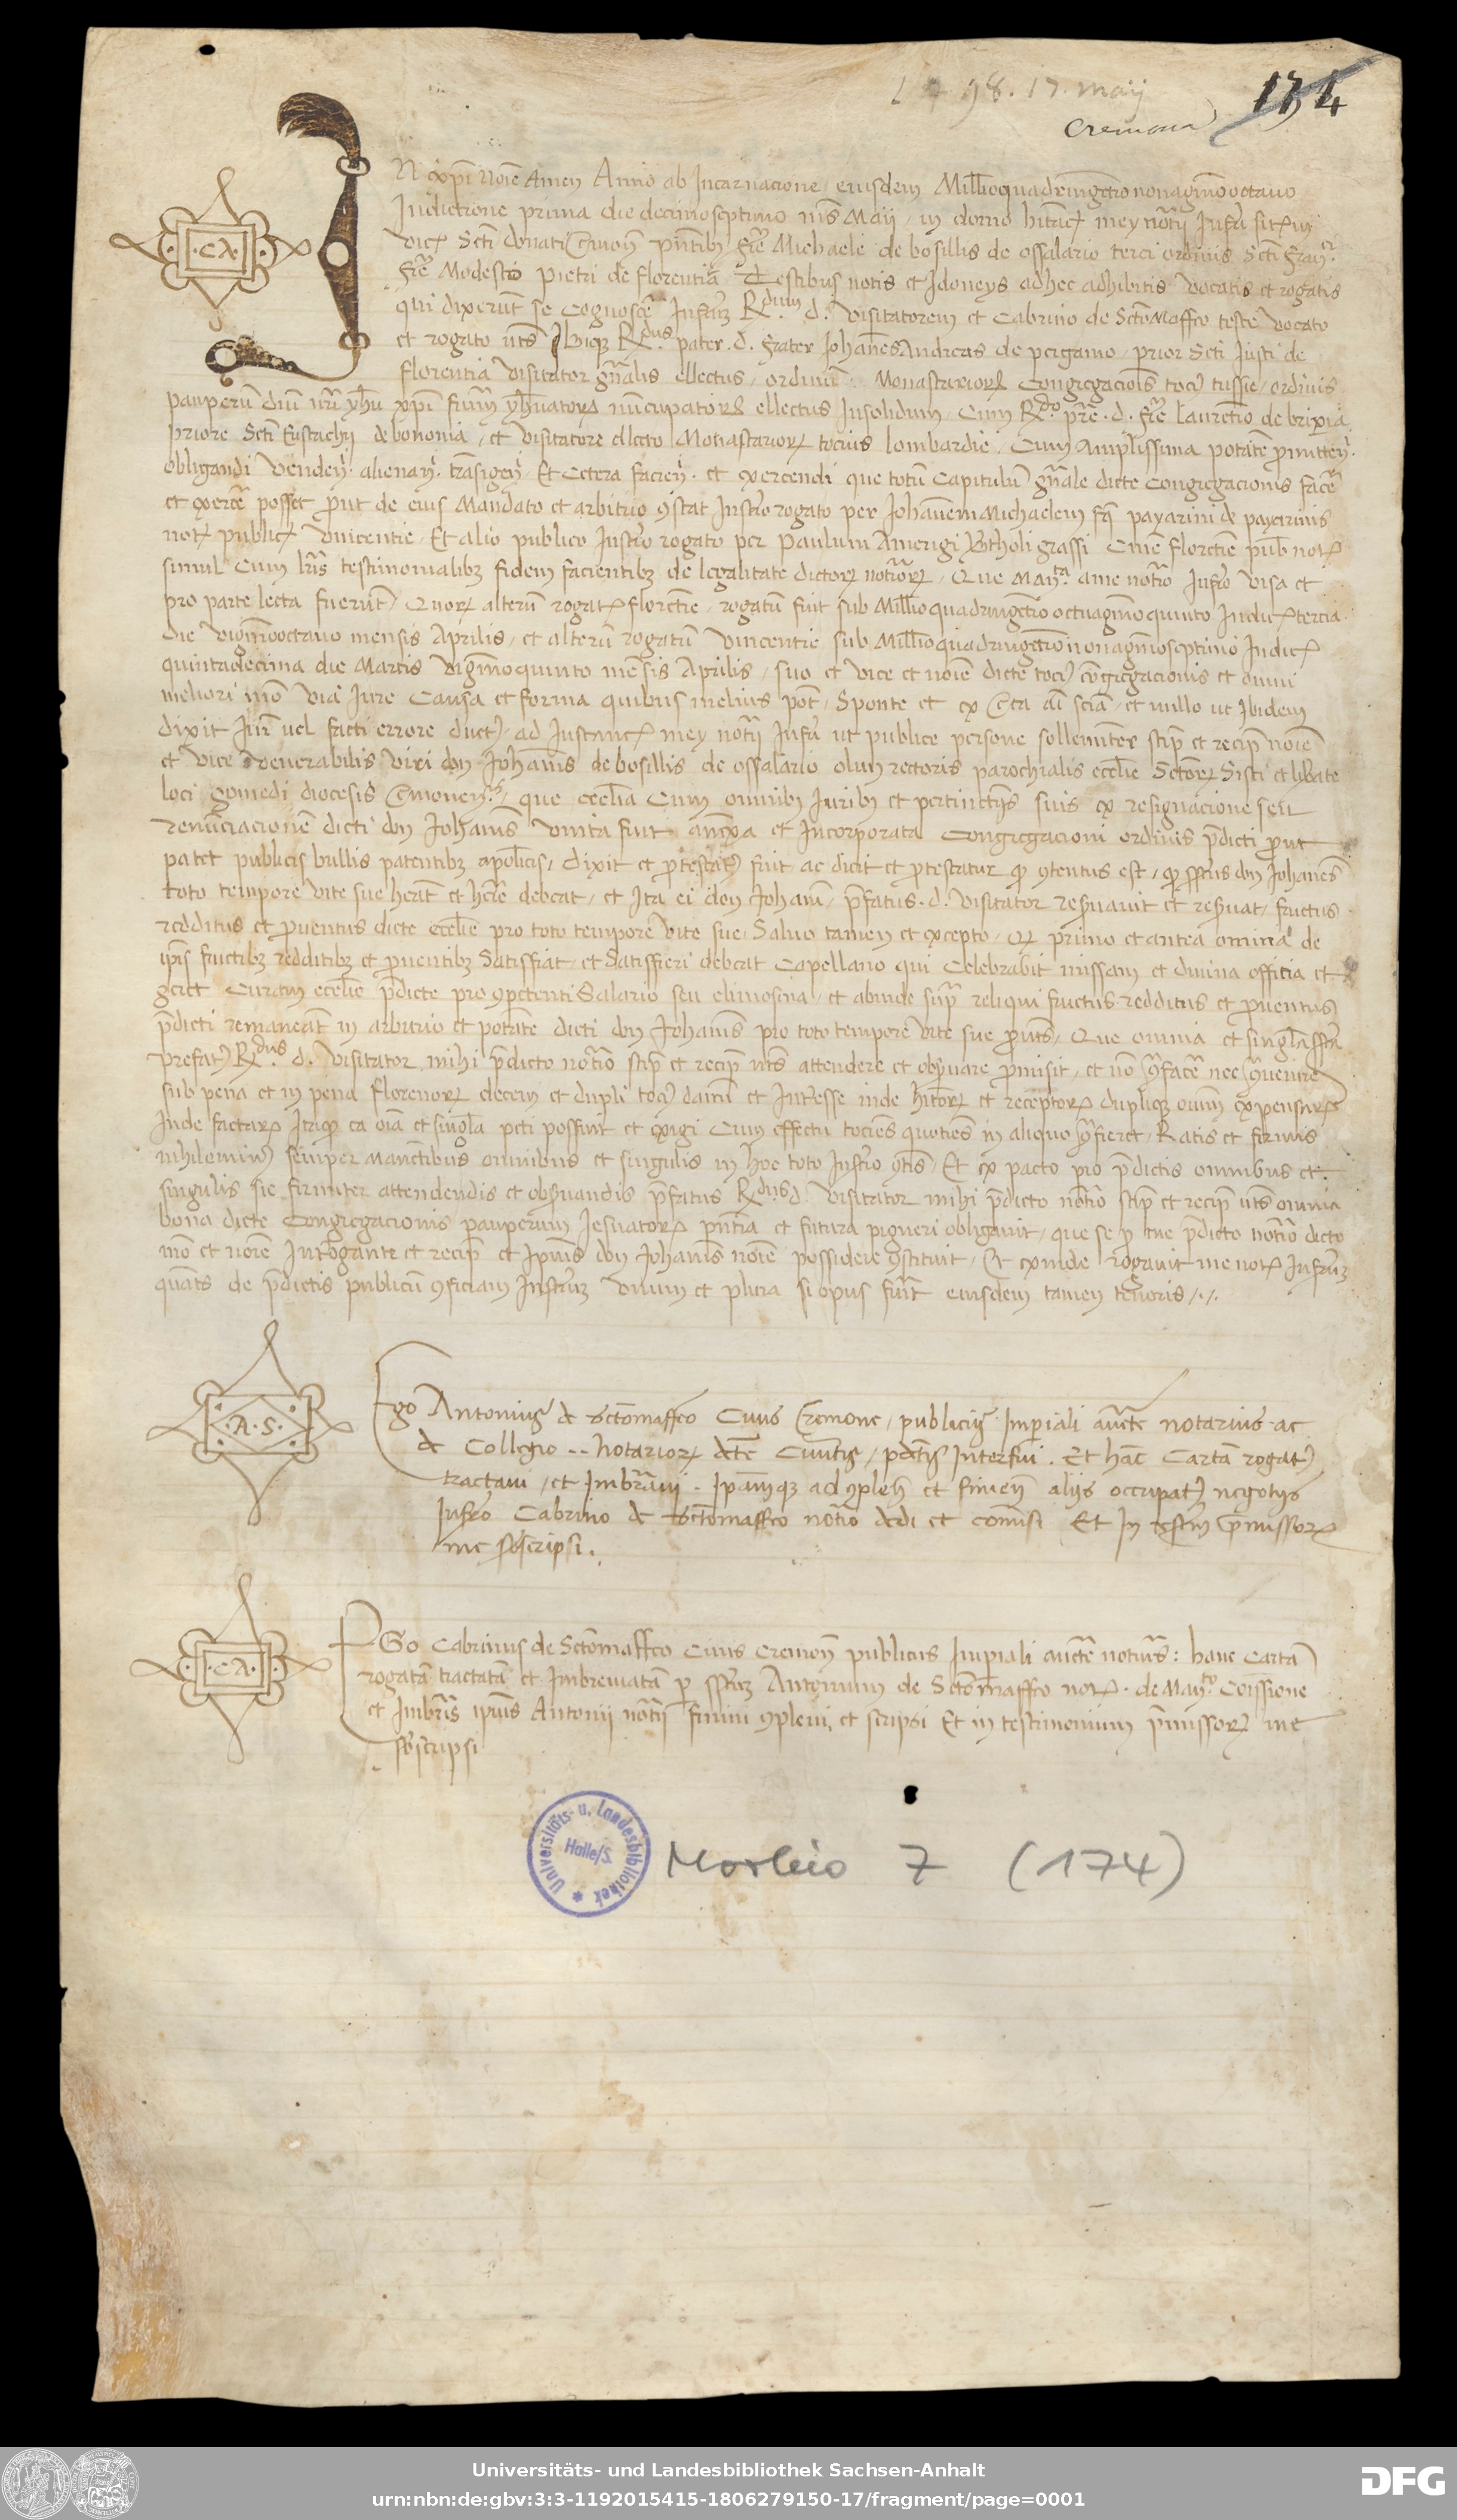 1498. 17. maÿ
Cremona
174
.CA.
IN xp̄i Noīe Amen Anno ab Incarnacione eiusdem Mill̄ioquadringēt̄ononagm̄ooctauo
Indictione prima die decimoseptimo mēs̄ Maii, in domo hit̄ac̄ mey not̄ii Infr̄a sit. in
vic. Sct̄i donati Cremon̄ pn̄tibȝ fr̄e Michaele de bosillis de ossalario terci ordinis Sct̄i fran.
fr̄e Modesto pietri de florentia Testibus notis et Idoneys adhec adhibitis vocatis et rogatis
qui dixerūt se Cognosce Infr̄m R.dum d. visitatorem et Cabrino de Sct̄oMaffeo teste vocato
et rogato ut̄s Ibiqȝ R.dus pater. d. frater Johan̄esAndreas de pergamo, prior Sct̄i Justi de
florentia visitator gn̄alis ellectus, ordinū. Monastariorꝝ Congregacioīs toci9 tussie, ordinis
pauperū dn̄i nr̄i yhū xp̄i frūm yhūatorꝝ nūcupatorꝝ ellectus Insolidum, Cum R.do pr̄e. d. fr̄e laurētio de brixia
priore Sct̄i Eustachij de bononia, et visitatore ellecto Monastariorꝝ tocius lombardie, Cum Amplissima potātē promitten.
obligandi venden. alienan. trāsigen. Et Cetera facien. et exercendi que totū Capitulū gn̄ale dicte Congregacionis facē
et exercē posset prout de eius Mandato et arbitrio 9stat Instro rogato per JohanēmMichaelem fq. payarini de payarinis
not. public. vincentie, Et alio publico Instro rogato per Paulum Amerigi Btholi grassi Ciuē florētie pub. not.
simul Cum lr̄is testimonialibȝ fidem facientibȝ de legalitate dictorꝝ notr̄orꝝ, Que Man.ta ame not̄io Infr̄o visa et
pro parte lecta fuerūt, Quorꝝ alterū rogat. florētie, rogatū fuit sub Mill̄ioquadringēt̄ooctuagm̄oquinto Indic. tercia
die vigm̄ooctauo mensis Aprilis, et alterū rogatū vincentie sub Mill̄ioquadringēt̄ononagm̄oseptimo Indic.
quintadecima die Martis vigm̄oquinto mēsis Aprilis, suo et vice et noīe dicte toci9 cōgregacionis et omni
meliori mō via Iure Causa et forma quibus melius pōt, Sponte et ex Certa aī sciā, et nullo ut Ibidem
dixit Iur̄ uel facti errore duct9, ad Instanc. mey not̄ii Infr̄i ut publice persone sollemnter stip̄ et recip̄ noīe
et vice venerabilis viri don Johan̄is de bosillis de ossalario olim rectoris parochialis ecc̄lie Sct̄orꝝ Sisti et lybate
loci gomedi diocesis Cremonen., que ecc̄lia Cum omnibȝ Iuribȝ et pertinētijs suis ex resignacione seu
renūciacionē dicti don Johan̄is vnita fuit anēxa et Incorporata Congregacioni ordinis pd̄icti prout
patet publicis bullis patentibȝ apolicis, Dixit et protestat9 fuit ac dicit et protestatur qp 9tentus est, qp ssc̄tus don Johan̄es
toto tempore vite sue heat et herē debeat, et Ita ei don Johan̄i, pfatus. d. visitator reseruauit et reseruat, fructus
redditus et prouentus dicte ecc̄lie pro toto tempore vite sue, Saluo tamen et excepto, qp primo et antea omnia de
ip̄is fructibȝ redditibȝ et prouentibȝ Satisfiat, et Satisfieri debeat Capellano qui Celebrabit missam et diuina officia et
geret Curam ecc̄lie pd̄icte pro 9petenti Salario seu elimosina, et abinde sup̄ reliqui fructus redditus et prouentus
pd̄icti remaneāt in arbitrio et potātē dicti don Johan̄is pro toto tempore vite sue prout̄s, Que omnia et singl̄a ssc̄ta
prefat9 R.dus d. visitator mihi pd̄icto not̄io stip̄ et recip̄ ut̄s attendere et obseruare promisit, et nō 9facē nec 9uenire
sub pena et in pena florenorꝝ decem et dupli toci9 damni et Interesse inde hitorꝝ et receptorꝝ dupliqȝ oīum expensarꝝ
Inde factarꝝ Itaqȝ ea oīa et singl̄a peti possint et exigi Cum effectu tociēs quotiēs in aliquo 9fieret, Ratis et firmis
nihilomin9 semper manētibus omnibus et singulis in hoc toto Instro 9t̄is, Et ex pacto pro pd̄ictis omnibus et
singulis sic firmiter attendendis et obseruandis pfatus R.dus d. visitator mihi pd̄icto not̄io stip̄ et recip̄ ut̄s omnia
bona dicte Congregacionis pauperum Jesuatorꝝ pn̄tia et futura pigneri obligauit, que se p me pd̄icto not̄io dicto
mō et noīe Interogante et recip̄ et Ipiūs don Johan̄is noīe possidere 9stituit, Et exinde rogauit me not. Infr̄m
quāt̄s de pd̄ictis publicū 9ficiam Instr̄m vnum et plura si opus fuit eiusdem tamen tenoris,·,·
.A.S.
Ego Antonius de Sct̄omaffeo Ciuis Cremone, publicus Imperiali auct̄e notarius ac
de Collegio -- notariorꝝ dc̄te Ciuit̄is, pdc̄tis Interfui. Et hāc Cartā rogat9
tractaui, et Imbr̄aui. Ipamqȝ ad 9plen̄ et finien̄ alijs occupat9 negotijs
Infr̄o Cabrino de Sct̄omaffeo not̄io dedi et comisi Et In testīm premissorꝝ
me sbscripsi.
.CA.
EGo Cabrinus de Sct̄omaffeo Ciuis Cremon̄ publicus Imperiali auct̄e notrius: hanc Cartā
rogatā tractatā et Imbreuiatā p ssc̄tm Antonium de Sct̄omaffeo not. de Man.to Coīssione
et Imbr̄is ipiūs Antonii not̄ii finiui 9pleui et scripsi Et in testimonium premissorꝝ me
sbscripsi
Universitäts- u. Landesbibliothek
Halle/S.
Morbio 7 (174)
Universitäts- und Landesbibliothek Sachsen-Anhalt
urn:nbn:de:gbv:3:3-1192015415-1806279150-17/fragment/page=0001
DFG